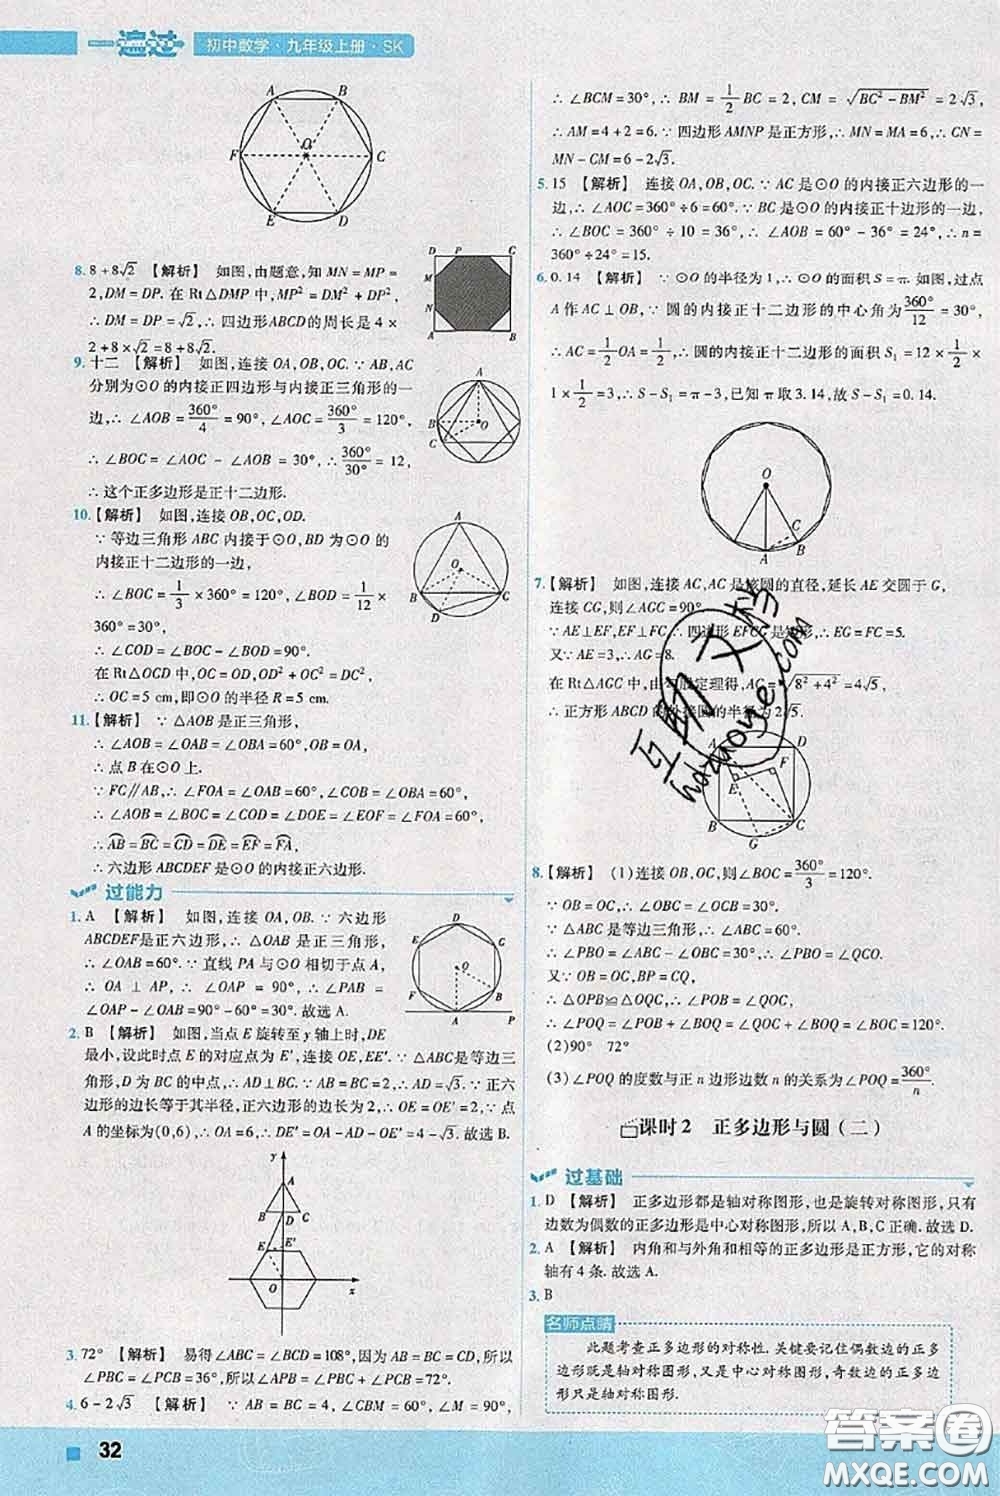 一遍过 初中数学·九年级上册·SK
A B
F O C
E D
8. 8+8√2 【解析】 如图,由题意,知 MN = MP =
2,DM = DP. 在 Rt△DMP 中,MP² = DM² + DP²,
∴ DM = DP = √2, ∴ 四边形ABCD的周长是 4 ×
2 + 8 × √2 = 8 + 8√2.
D P C
M
N
A B
9. 十二 【解析】 如图,连接 OA,OB,OC. ∵ AB,AC
分别为⊙O 的内接正四边形与内接正三角形的一
边,∴ ∠AOB = 360°/4 = 90°, ∠AOC = 360°/3 = 120°,
∴ ∠BOC = ∠AOC − ∠AOB = 30°, ∴ 360°/30° = 12,
∴ 这个正多边形是正十二边形.
A
B O
C
10. 【解析】 如图,连接 OB,OC,OD.
∵ 等边三角形 ABC 内接于⊙O,BD 为⊙O 的
内接正十二边形的一边,
∴ ∠BOC = 1/3 × 360° = 120°, ∠BOD = 1/12 ×
360° = 30°,
∴ ∠COD = ∠BOC − ∠BOD = 90°.
在 Rt△OCD 中,OC = OD,CD = 5√2 cm,
∴ OC = 5 cm,即⊙O 的半径 R = 5 cm.
A
O
B C
D
11. 【解析】 ∵ △AOB 是正三角形,
∴ ∠AOB = ∠OAB = ∠OBA = 60°,OB = OA,
∴ 点 B 在⊙O 上.
∵ FC∥AB, ∴ ∠FOA = ∠OAB = 60°,
∴ ∠AOB = ∠BOC = ∠COD = ∠DOE = ∠EOF =
∠FOA = 60°,
∴ AB = BC = CD = DE = EF = FA,
∴ 六边形 ABCDEF 是⊙O 的内接正六边形.
过能力
1. A 【解析】 如图,连接 OA,OB. ∵ 六边形
ABCDEF是正六边形,∴ △OAB 是正三角形,
∴ ∠OAB = 60°. ∵ 直线 PA 与⊙O 相切于点 A,
∴ OA ⊥ AP, ∴ ∠OAP = 90°, ∴ ∠PAB =
∠OAP − ∠OAB = 90° − 60° = 30°. 故选 A.
D
E C
O
F B
A P
2. B 【解析】 如图,当点 E 旋转至 y 轴上时,DE
最小,设此时点 E 的对应点为 E′,连接 OE,EE′. ∵ △ABC是等边三
角形,D 为 BC 的中点,∴ AD⊥BC. ∵ AB = BC = 2,∴ AD = √3. ∵ 正六
边形的边长等于其半径,正六边形的边长为 2,∴ OE = OE′ = 2. ∵ 点
A 的坐标为(0,6),∴ OA = 6,∴ DE′ = OA − AD − OE′ = 4 − √3. 故选 B.
y
A
B D C
E E′
O x
3. 72° 【解析】 易得∠ABC = ∠BCD = 108°,因为 AB = BC = CD,所以
∠PBC = ∠PCB = 36°,所以∠APB = ∠PBC + ∠PCB = 72°.
4. 6 − 2√3 【解析】 ∵ AB = BC = 4, ∠CBM = 60°, ∠M = 90°,
∴ ∠BCM = 30°, ∴ BM = 1/2 BC = 2,CM = √(BC² − BM²) = 2√3,
∴ AM = 4 + 2 = 6. ∵ 四边形 AMNP 是正方形,∴ MN = MA = 6,∴ CN =
MN − CM = 6 − 2√3.
5. 15 【解析】 连接 OA,OB,OC. ∵ AC 是⊙O 的内接正六边形的一
边,∴ ∠AOC = 360° ÷ 6 = 60°. ∵ BC 是⊙O 的内接正十边形的一边,
∴ ∠BOC = 360° ÷ 10 = 36°, ∴ ∠AOB = 60° − 36° = 24°, ∴ n =
360° ÷ 24° = 15.
6. 0.14 【解析】 ∵ ⊙O 的半径为 1,∴ ⊙O 的面积 S = π. 如图,过点
A 作 AC ⊥ OB, ∵ 圆的内接正十二边形的中心角为 360°/12 = 30°,
∴ AC = 1/2 OA = 1/2, ∴ 圆的内接正十二边形的面积 S₁ = 12 × 1/2 ×
1 × 1/2 = 3,∴ S − S₁ = π − 3,已知 π 取 3.14,故 S − S₁ = 0.14.
O
C
A B
7. 【解析】 如图,连接 AC,AC 是该圆的直径,延长 AE 交圆于 G,
连接 CG,则∠AGC = 90°.
∵ AE⊥EF,EF⊥FC,∴ 四边形 EFCG 是矩形,∴ EG = FC = 5.
又∵ AE = 3,∴ AG = 8.
在 Rt△AGC 中,由勾股定理得,AC = √(8² + 4²) = 4√5,
∴ 正方形 ABCD 的外接圆的半径为 2√5.
互助文档
huzuoye.com
D
E F
B C
G
8. 【解析】 (1)连接 OB,OC,则∠BOC = 360°/3 = 120°.
∵ OB = OC, ∴ ∠OBC = ∠OCB = 30°.
∵ △ABC 是等边三角形,∴ ∠ABC = 60°.
∴ ∠PBO = ∠ABC − ∠OBC = 30°, ∴ ∠PBO = ∠QCO.
又∵ OB = OC,BP = CQ,
∴ △OPB≌△OQC, ∴ ∠POB = ∠QOC,
∴ ∠POQ = ∠POB + ∠BOQ = ∠QOC + ∠BOQ = ∠BOC = 120°.
(2)90° 72°
(3) ∠POQ 的度数与正 n 边形边数 n 的关系为∠POQ = 360°/n.
课时2 正多边形与圆(二)
过基础
1. D 【解析】 正多边形都是轴对称图形,也是旋转对称图形,只有
边数为偶数的正多边形是中心对称图形,所以 A,B,C 正确. 故选 D.
2. A 【解析】 内角和与外角和相等的正多边形是正方形,它的对称
轴有 4 条. 故选 A.
3. B
名师点睛
此题考查正多边形的对称性. 关键要记住偶数边的正多
边形既是轴对称图形,又是中心对称图形,奇数边的正多边
形只是轴对称图形.
32
答案圈
MXQE.COM